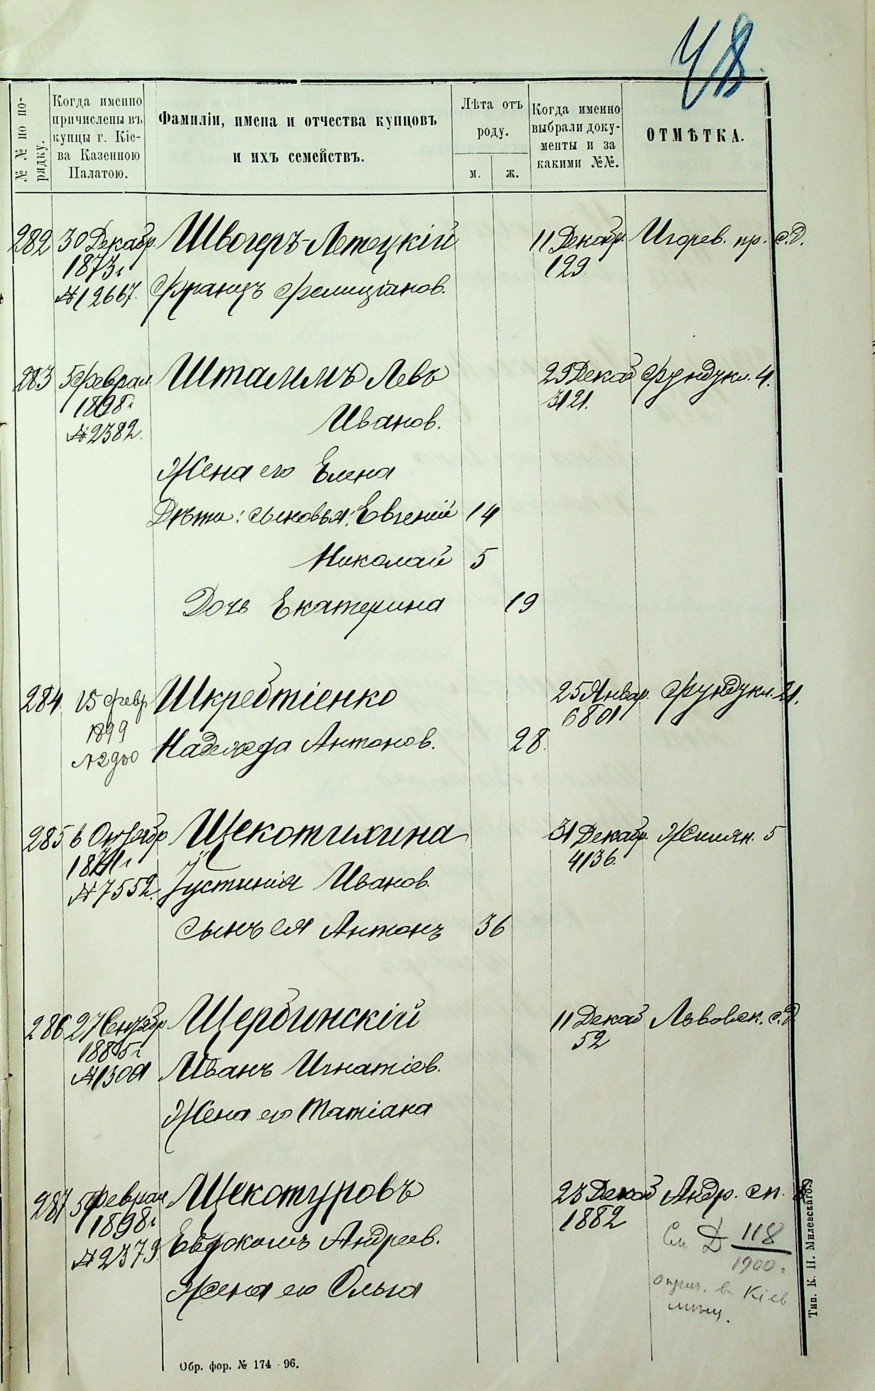 48.
№№ по по-
рядку.
Когда именно
причислены въ
купцы г. Кіе-
ва Казенною
Палатою.
Фамиліи, имена и отчества купцовъ
и ихъ семействъ.
Лѣта отъ
роду.
м. ж.
Когда именно
выбрали доку-
менты и за
какими №№.
ОТМѢТКА.
282 30 Декабр. Швогеръ-Летецкій 11 Декабр. Игорев. пр. с.д.
1873 г. 129
№12667. Францъ Фелиціанов.
283 5 Феврал Штаммъ Левъ 29 Декаб Фундукл. 4.
1898 г. 3121.
№2382. Иванов.
Жена его Елена
Дѣти: сыновья: Евгеній 14
Николай 5
Дочь Екатерина 19
284. 15 Февр Шкребтіенко 25 Январ. Фундукл. 21.
1899 6801
Надежда Антонов. 28.
285 6 Октябр Щекотихина 31 Декабр. Жилян. 5
4136.
№7552. Іустинія Иванов.
Сынъ ея Антонъ 36
286 27 Сентябр Щербинскій 11 Декаб Львовск. с.д.
1885 г. 52
Иванъ Игнатіев.
Жена его Татіана
287 5 Феврал Щекотуровъ 23 Декаб Андр. сп.
1898 г. 1882
№2379 Евдокимъ Андреев.
См Д 118
1900 г.
Жена его Ольга
в Кіев
мѣщ.
Обр. фор. № 174 - 96.
Тип. К. Н. Милевскаго.